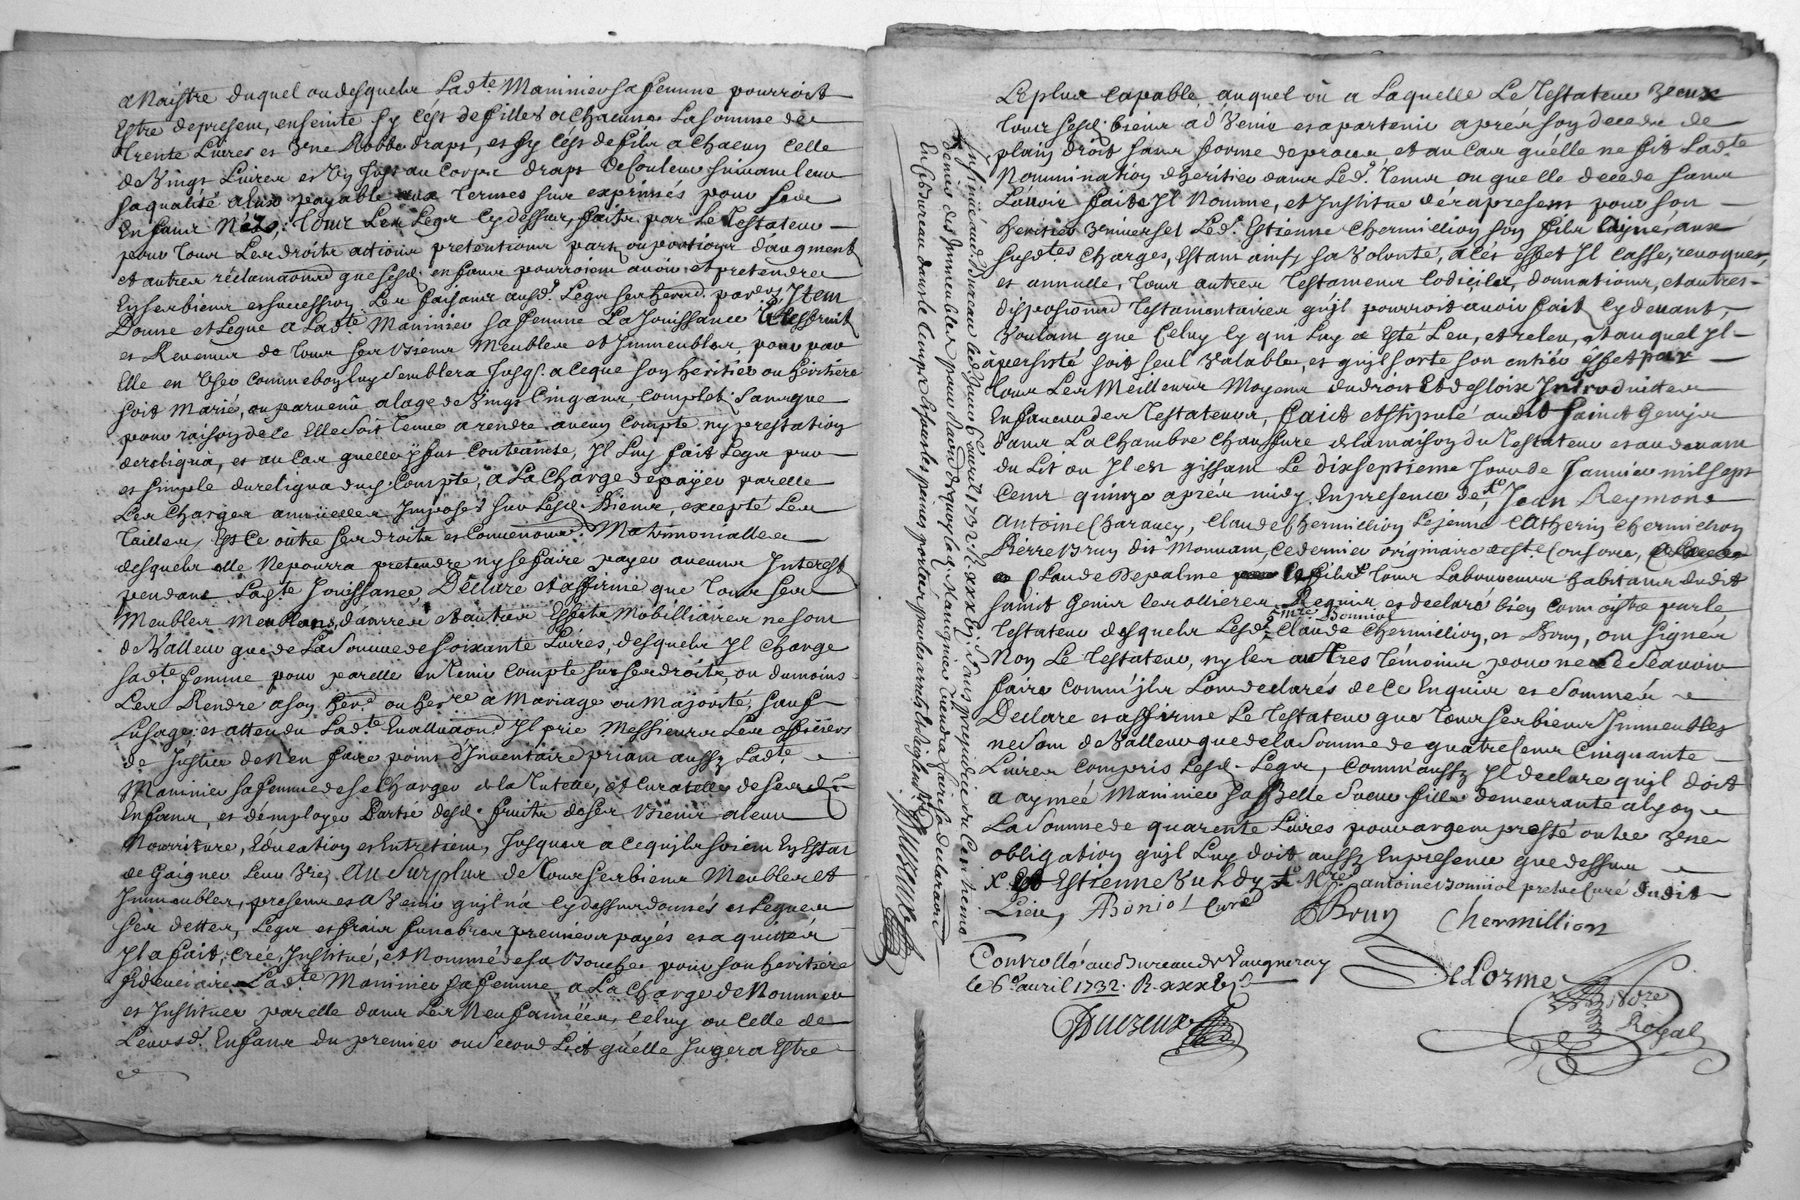 a Naistre duquel ou desquelz Ladte Maninier sa femme pourroit
Estre de present, enseinte sy c'est de filles a chacune La somme de
trente Livres et Vne Robbe draps, et sy c'est de fils a chacun celle
de Vingt Livres et Vn Just au Corps draps de Couleur suivant leur
sa qualité aussy payable aux termes sus exprimés pour sesd
Enfans Néz, tour Les Legs Cy dessus, faits par Le Testateur
pour tous Les droits actions pretentions parts ou portions d'augment
et autres réclamaons que sesd. enfans pourroient avoir et pretendre
En ses biens et succession Les faisant ausd. Legs ses herers par
Item
Donne et Legue a Ladte Maninier sa femme La Jouissance
et Revenus de tous ses Biens Meubles et Immeubles pour par
Elle en User comme bon luy semblera Jusqs. a ceque son héritier ou héritiere
soit Marié, ou parvenü a lage de Vingt Cinq ans complet, sans que
pour raison de ce Elle soit tenue a rendre aucun Compte ny prestation
de reliqua, et au cas quelle y fut contrainte, Il Luy fait Legs pur
et simple du reliqua dud. Compte, a La Charge de payer par elle
Les Charges annüelles Imposés sur Lesd. Biens, excepté Les
tailles, Et Ce outre ses droits et Conventions Matrimonialles
desquels elle Ne pourra pretendre ny se faire payer aucuns Interest
pendant Ladte Jouissance, Déclare et affirme que tous ses
Meubles Meublans, danrées et autres Effets Mobilliaires ne sont
de Valleur que de La Somme de soixante Livres, desquels Il Charge
sadte femme pour par elle en tenir compte sur ses droits, ou dumoins
Les Rendre a son herer ou herre a Mariage ou Majorité, sauf
Lusage, et attendu Ladte Evalluaon Il prie Messieurs Les officiers
de Justice de N'en faire point d'Inventaire priant aussy Ladte
Maninier sa femme de se Charger de la Tutelle, et Curatelle de sesd.
Enfans, et d'employer Partie desd. fruits de ses Biens a leur
Nourriture, Education et Entretient, Jusques a ce quils soient En Estat
de Gaigner Leur Vie, Au Surplus de tous ses biens Meubles et
Immeubles, presents et a Venir quil n'a Cy dessus donnés et Legués
ses dettes, Legs et frais funebres premiers payés et aquittés
Il a fait, créé, Institué, et Nommé de sa Bouche pour son heritiere
fideiciaire Ladte Maninier sa femme, a La Charge de Nommer
et Instituer par elle dans Les Neuf années, Celuy ou Celle de
Leursd. Enfans du premier ou Second Lict qu'elle Jugera Estre
Le plus Capable, auquel ou a Laquelle Le Testateur Veux
tous sesd. biens a d'Venir et apartenir aprés son decedz de
plain droit sans forme de procez et au cas qu'elle ne fit Ladte
Nommination d'heritier dans Led. tems ou quelle decede sans
Lavoir faite Il Nomme, et Institue dèz apresent pour son
heritier Vniversel Led. Estienne Chermillion son fils Aigné, aux
susdtes Charges, Estant ainsy sa Volonté, a Cet effet Il Casse, revoque,
et annulle, tous autres Testamens Codiçiles, donnations, et autres
dispositions Testamentaires qu'il pourroit avoir fait Cy devant,
Voulant que Celuy Cy qui Luy a Esté Leu, et releu, et auquel Il
à persisté soit seul Valable, et quil sorte son entier effet par
tous Les Meilleurs Moyens du droit Et des loix Introduittes
En faveur des Testateurs, faict et stipulé audit saint Genix
dans La Chambre Chauffure de la maison du Testateur et au devant
du Lit ou Il est gissant Le dixseptieme Jour de Janvier mil sept
Cent quinze aprés midy, En presence de Jean Reymond
Antoine Charavey, Claude Chermillion Lejeune Catherin Chermillion
Pierre Brun dit Monnant, ce dernier originaire de ste Consorce,
Claude Depalme Le fils tous Laboureurs habitans dudit
saint Genix Les ollieres, Requis et declaré bien connoistre par Le
Mre Bonniol
Testateur desquels Lesd. Claude Chermillion, et Brun, ont signés
Non Le Testateur, ny les autres témoins pour ne Le Scavoir
faire comm'jls L'ont declarés de Ce Enquis et Sommés
Declare et affirme Le Testateur que tous ses biens Immeubles
ne sont de Valleur que de la Somme de quatre Cent Cinquante
Livres Compris Lesd. Legs, comm'aussy Il declare quil doit
a aymée Maninier sa Belle Soeur fille demeurante a Lyon
La Somme de quarente Livres pour argent presté outre Vne
obligation quil Luy doit aussy En presence que dessus
Estienne antoine Bonniol pretre Curé dudit
Lieu, Boniol Curé
Brun
Chermillion
DeLorme
Nore
Royal
Controllé au Bureau de Vaugneray
le 6e avril 1732. R. xxxvj s
Duvzeux
Insinué aud. Bureau led. Jour 6e avril 1732. R. xxxvj s. sans prejudice du Centieme
denier des Immeubles pour raison de quoy lad. Maninier viendra faire sa declaraon
En ce Bureau dans le temps de six mois sous les peines portées par les arrets et reglemens
Duvzeux